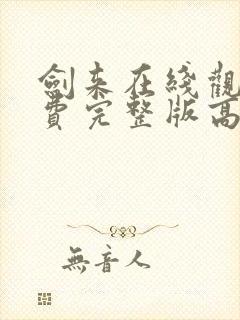 劍来在綫觀
費完整版高
無音人